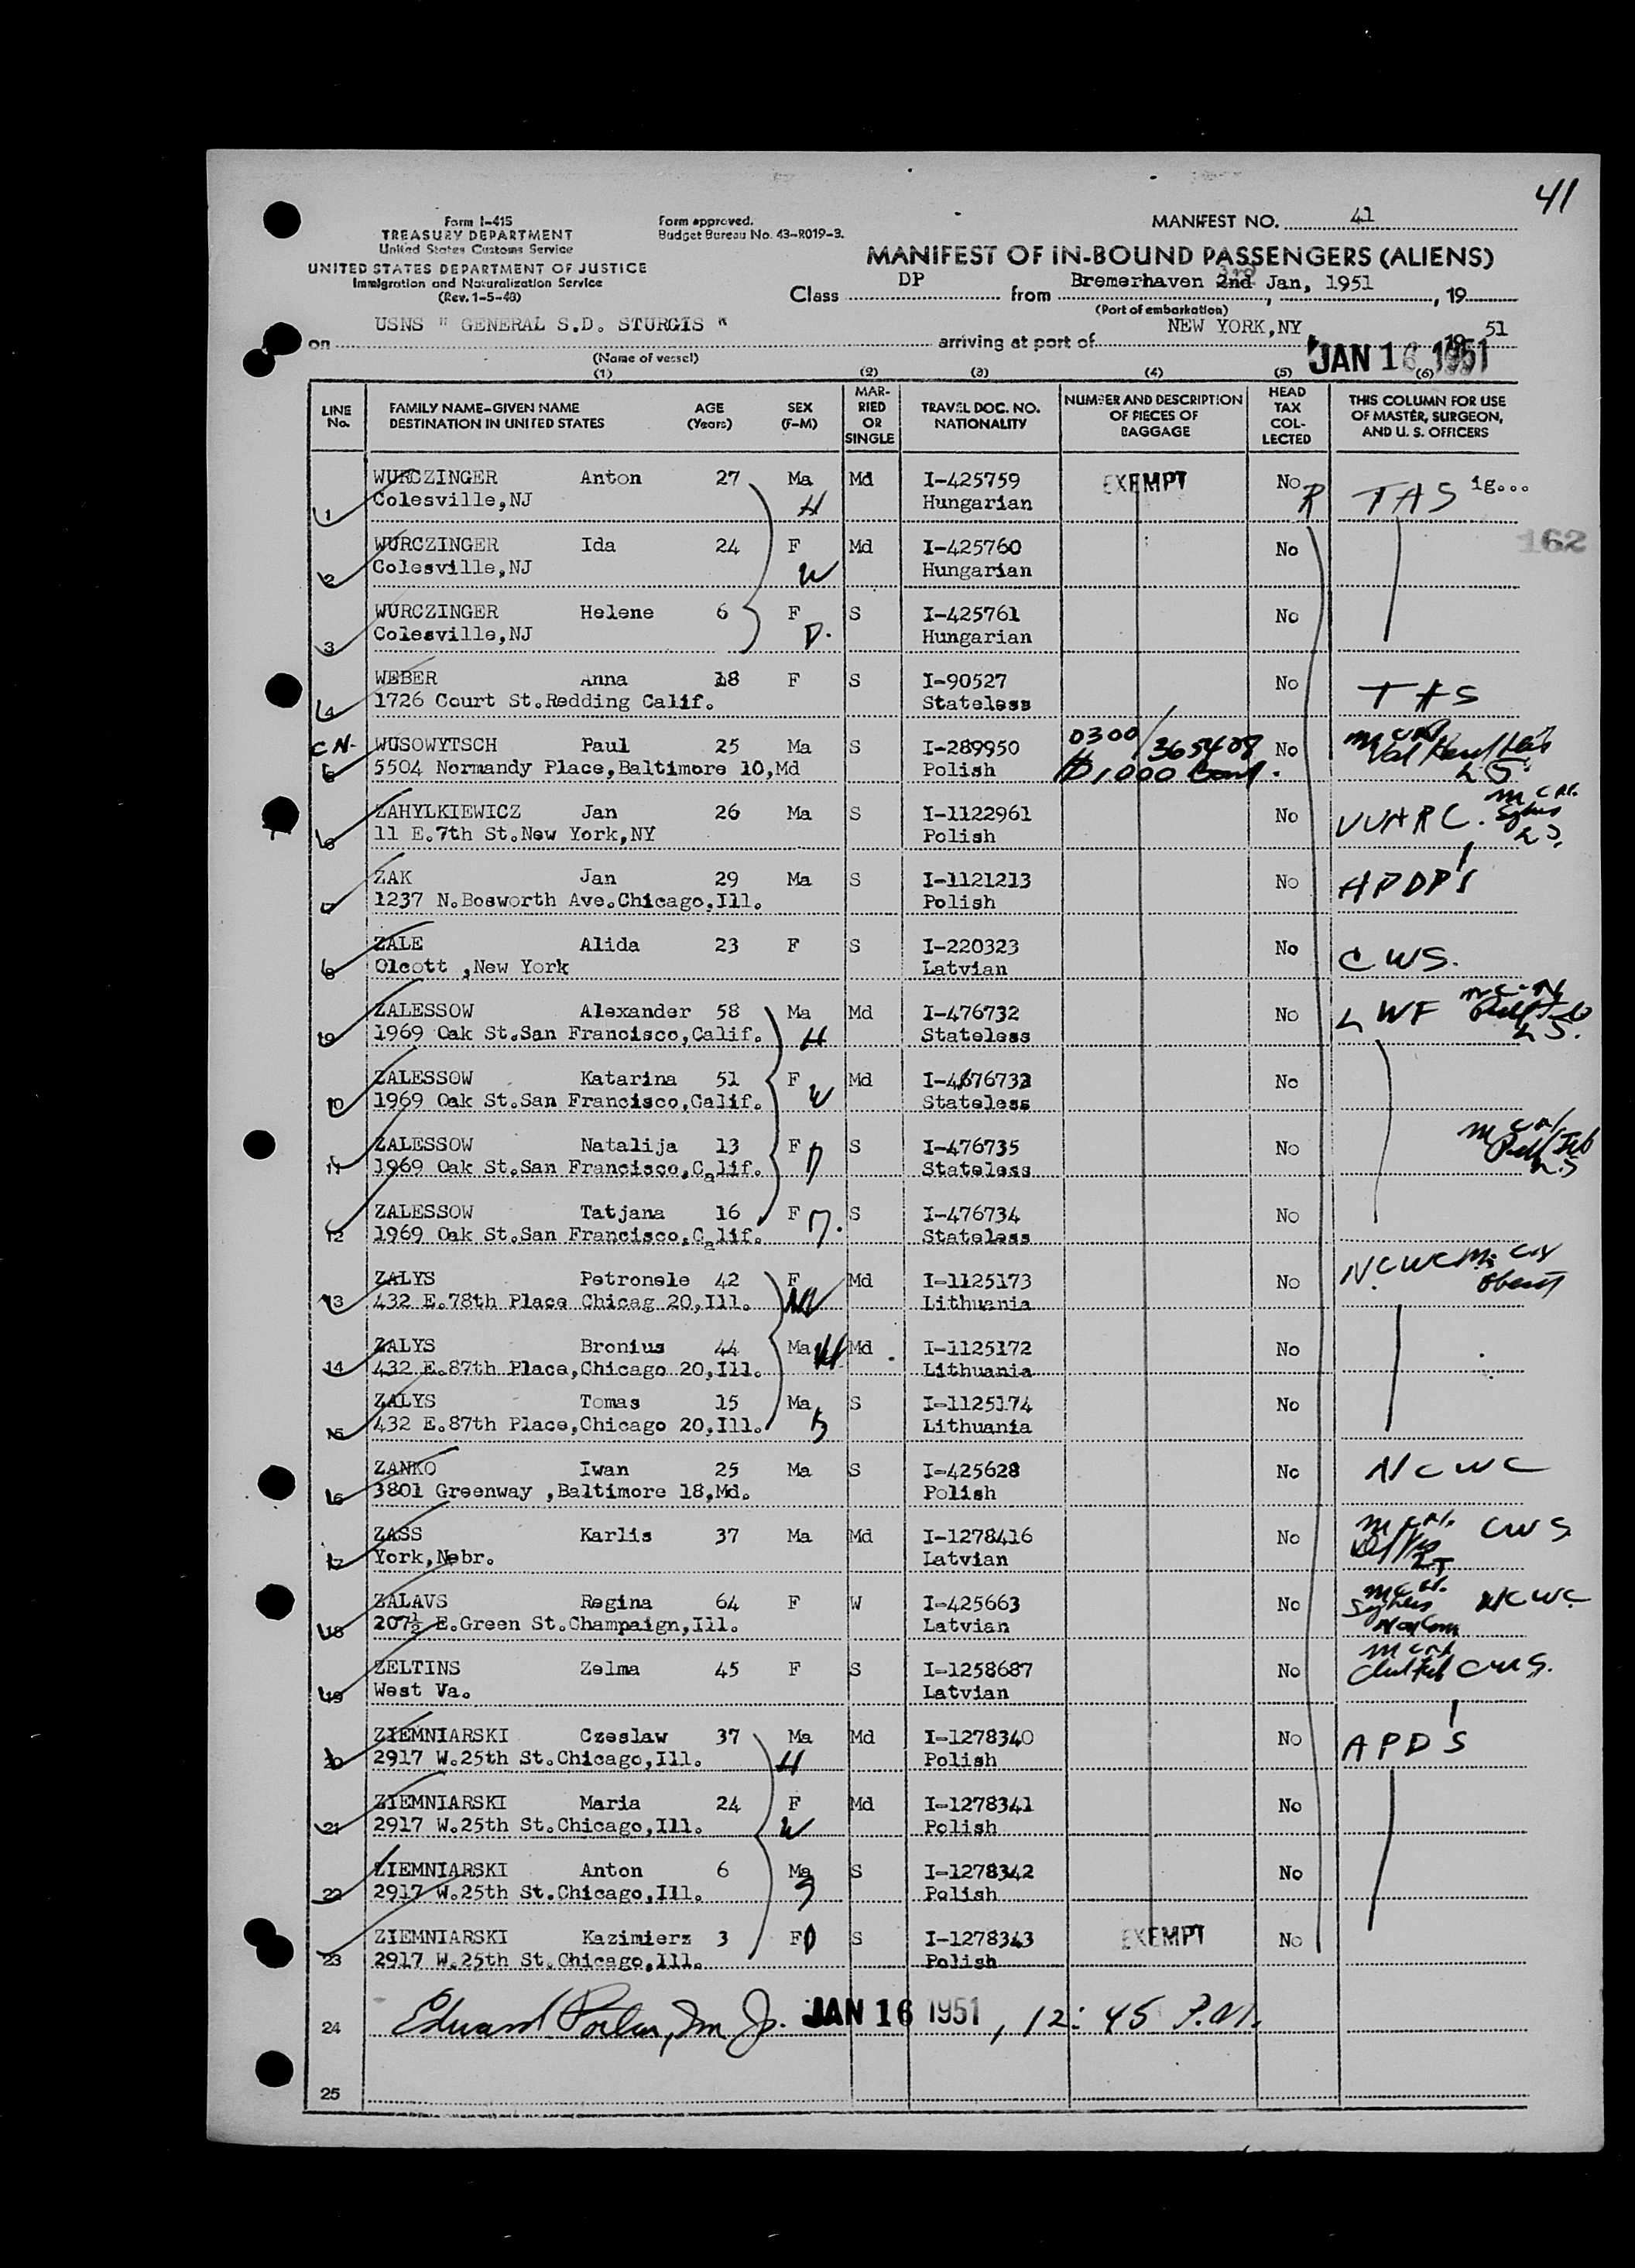 41
Form I-415
TREASURY DEPARTMENT
United States Customs Service
UNITED STATES DEPARTMENT OF JUSTICE
Immigration and Naturalization Service
(Rev. 1-5-48)
Form approved.
Budget Bureau No. 43-R019-3.
MANIFEST NO. 41
MANIFEST OF IN-BOUND PASSENGERS (ALIENS)
Class DP from Bremerhaven 2nd 3rd Jan, 1951, 19
(Port of embarkation)
on USNS " GENERAL S.D. STURGIS " arriving at port of NEW YORK,NY 19 51
(Name of vessel)
JAN 16 1951
(1) (2) (3) (4) (5) (6)
LINE No. FAMILY NAME-GIVEN NAME DESTINATION IN UNITED STATES AGE (Years) SEX (F-M) MARRIED OR SINGLE TRAVEL DOC. NO. NATIONALITY NUMBER AND DESCRIPTION OF PIECES OF BAGGAGE HEAD TAX COLLECTED THIS COLUMN FOR USE OF MASTER, SURGEON, AND U. S. OFFICERS
WURCZINGER Anton 27 Ma Md I-425759 EXEMPT No R TAS ig...
1 Colesville,NJ H Hungarian
162
WURCZINGER Ida 24 F Md I-425760 No
2 Colesville,NJ W Hungarian
WURCZINGER Helene 6 F S I-425761 No
3 Colesville,NJ D. Hungarian
WEBER Anna 18 F S I-90527 No TAS
4 1726 Court St.Redding Calif. Stateless
C.N. WUSOWYTSCH Paul 25 Ma S I-289950 0300/365408 No
5 5504 Normandy Place,Baltimore 10,Md Polish $1,000 Bond.
ZAHYLKIEWICZ Jan 26 Ma S I-1122961 No UUARC.
6 11 E.7th St.New York,NY Polish
ZAK Jan 29 Ma S I-1121213 No APDP
7 1237 N.Bosworth Ave.Chicago,Ill. Polish
ZALE Alida 23 F S I-220323 No CWS.
8 Olcott ,New York Latvian
ZALESSOW Alexander 58 Ma Md I-476732 No LWF
9 1969 Oak St.San Francisco,Calif. H Stateless
ZALESSOW Katarina 51 F Md I-4676733 No
10 1969 Oak St.San Francisco,Calif. W Stateless
ZALESSOW Natalija 13 F D S I-476735 No
11 1969 Oak St.San Francisco,Calif. Stateless
ZALESSOW Tatjana 16 F D. S I-476734 No
12 1969 Oak St.San Francisco,Calif. Stateless
ZALYS Petronele 42 F Md I-1125173 No NCWC
13 432 E.78th Place Chicag 20,Ill. W Lithuania
ZALYS Bronius 44 Ma H Md I-1125172 No
14 432 E.87th Place,Chicago 20,Ill. Lithuania
ZALYS Tomas 15 Ma S I-1125174 No
15 432 E.87th Place,Chicago 20,Ill. Lithuania
ZANKO Iwan 25 Ma S I-425628 No NCWC
16 3801 Greenway ,Baltimore 18,Md. Polish
ZASS Karlis 37 Ma Md I-1278416 No CWS
17 York,Nebr. Latvian
ZALAVS Regina 64 F W I-425663 No NCWC
18 207½ E.Green St.Champaign,Ill. Latvian
ZELTINS Zelma 45 F S I-1258687 No CWS.
19 West Va. Latvian
ZIEMNIARSKI Czeslaw 37 Ma Md I-1278340 No APDS
20 2917 W.25th St.Chicago,Ill. H Polish
ZIEMNIARSKI Maria 24 F Md I-1278341 No
21 2917 W.25th St.Chicago,Ill. W Polish
ZIEMNIARSKI Anton 6 Ma S I-1278342 No
22 2917 W.25th St.Chicago,Ill. S Polish
ZIEMNIARSKI Kazimierz 3 F D S I-1278343 EXEMPT No
23 2917 W.25th St.Chicago,Ill. Polish
24 Edward JAN 16 1951, 12:45 P.M.
25